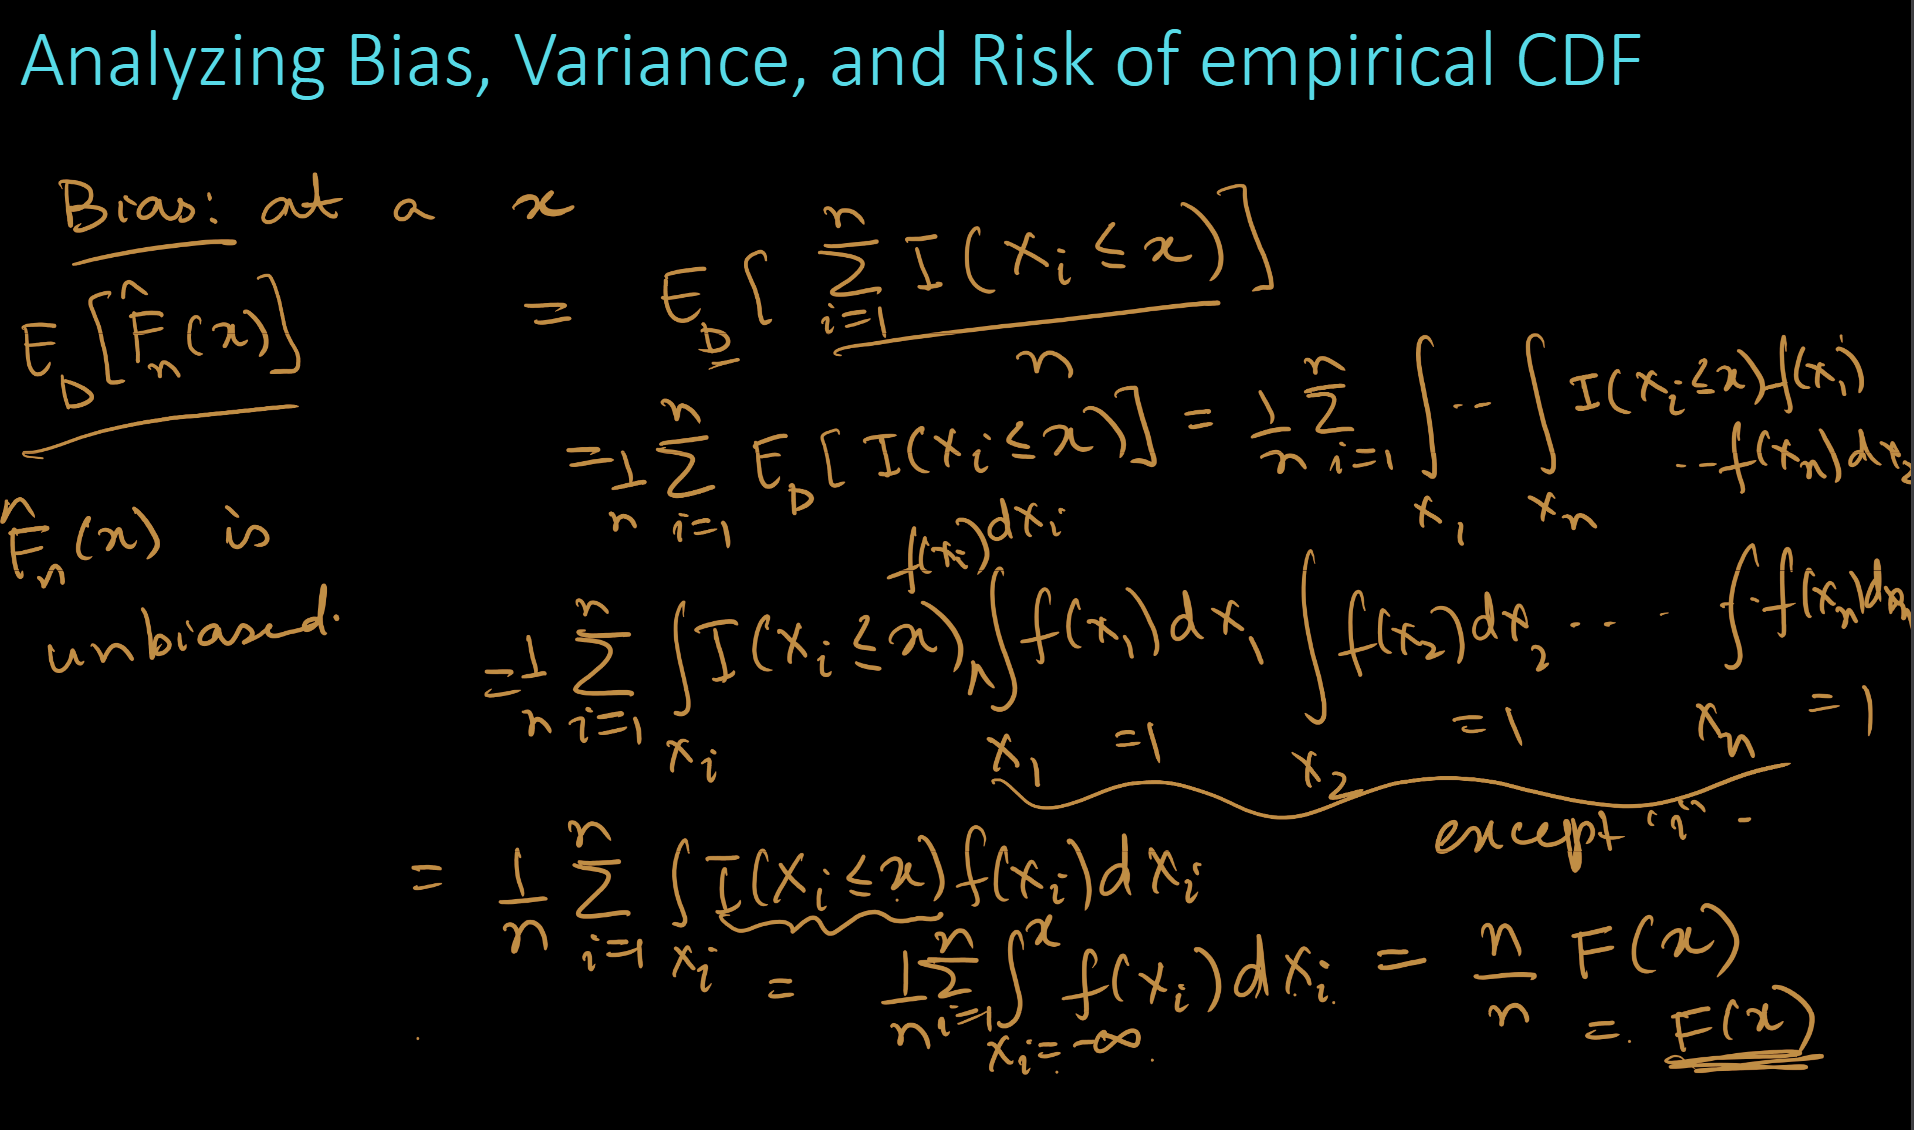 Analyzing Bias, Variance, and Risk of empirical CDF
Bias: at a x
E_D [F̂_n(x)] = E_D [ Σ_{i=1}^{n} I(X_i ≤ x) / n ]
= 1/n Σ_{i=1}^{n} E_D [I(X_i ≤ x)] = 1/n Σ_{i=1}^{n} ∫_{X_1} -- ∫_{X_n} I(X_i ≤ x) f(X_1)
-- f(X_n) dX_2
F̂_n(x) is
unbiased.
f(X_i) dX_i
= 1/n Σ_{i=1}^{n} ∫_{X_i} I(X_i ≤ x) ∫_{X_1} f(X_1) dX_1 ∫_{X_2} f(X_2) dX_2 .... ∫_{X_n} f(X_n) dX_n
=1 =1 =1
except "i" -
= 1/n Σ_{i=1}^{n} ∫_{X_i} I(X_i ≤ x) f(X_i) dX_i
= 1/n Σ_{i=1}^{n} ∫_{X_i=-∞}^{x} f(X_i) dX_i = n/n F(x)
= F(x)